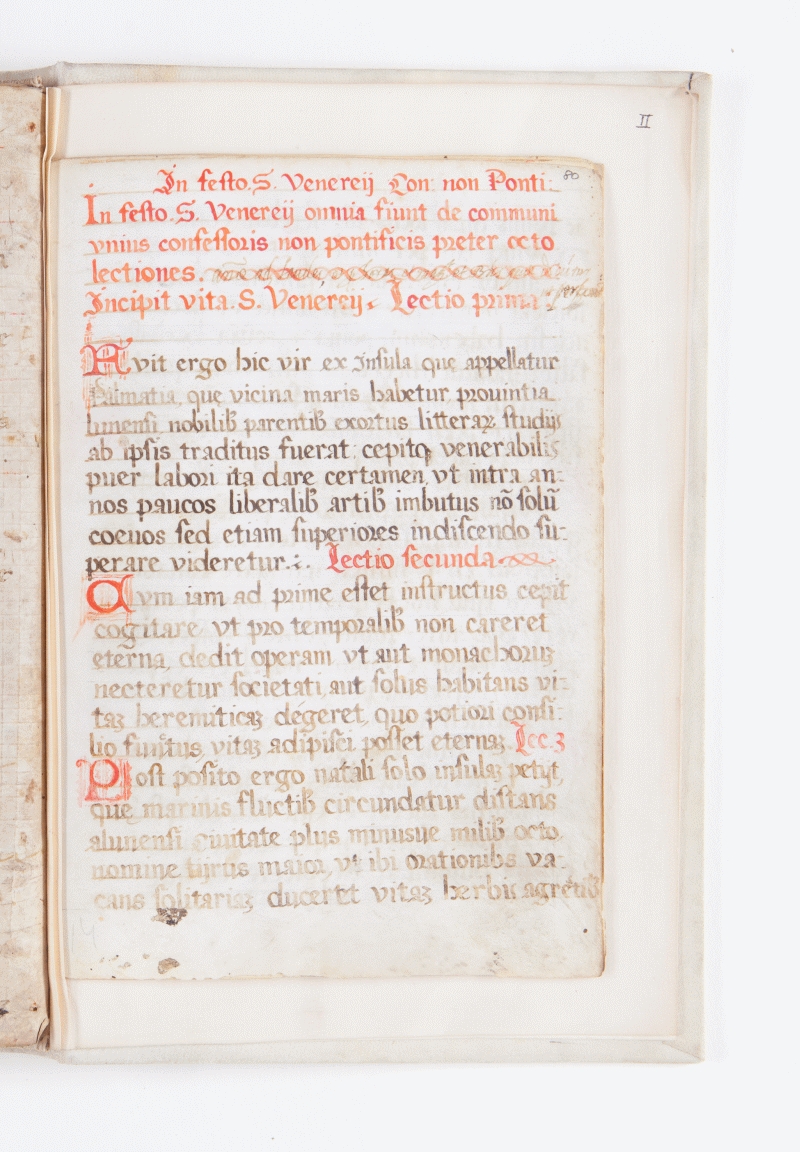 II
80
In festo. S. Venereij Con: non Ponti:
In festo. S. Venereij omnia fiunt de communi
vnius confessoris non pontificis preter octo
lectiones.
Incipit vita. S. Venereij. Lectio prima.
Fvit ergo hic vir ex Insula que appellatur
Palmatia, que vicina maris habetur prouintia
lunensi nobilib parentib exortus litteraꝝ studijs
ab ipsis traditus fuerat: cepitqꝫ venerabilis
puer labori ita dare certamen, vt intra an:
nos paucos liberalib artib imbutus nō solū
coeuos sed etiam superiores in discendo su:
perare videretur.:. Lectio secunda
Cvm iam ad prime esset instructus cepit
cogitare vt pro temporalib non careret
eterna, dedit operam vt aut monachoruꝫ
necteretur societati, aut solus habitans vi:
taꝫ heremiticaꝫ dégeret, quo potiori consi:
lio functus, vitaꝫ adipisci posset eternaꝫ. Lec. 3
Post posito ergo natali solo insulaꝫ petijt,
que marinis fluctib circundatur distans
alunensi ciuitate plus minusue milib octo,
nomine tyrus maior, vt ibi orationibs va:
cans solitariaꝫ duceret vitaꝫ herbis agrestib